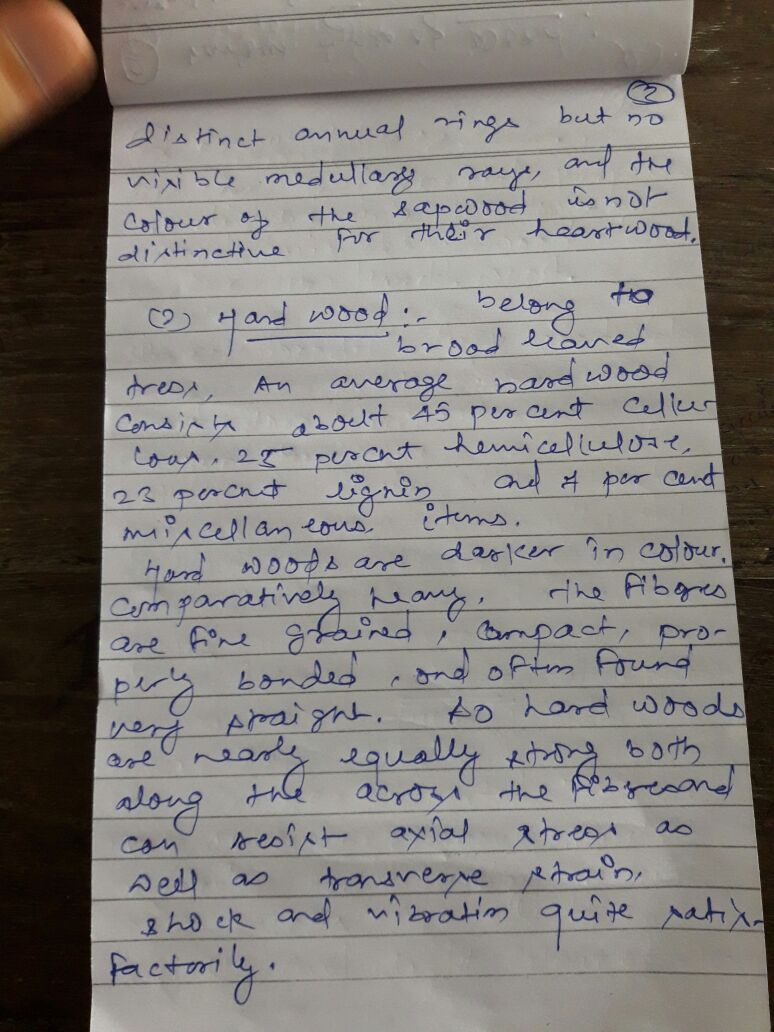 2
distinct annual rings but no
visible medullary rays, and the
colour of the sapwood is not
distinctive for their heartwood.
(2) Hard wood :- belong to
broad leaved
tress, An average hardwood
consists about 45 percent cellu-
loas. 25 percnt hemicellulose,
23 percnt lignin and 7 per cent
miscellaneous items.
Hard woods are darker in colour.
Comparatively heavy. The fibres
are fine grained, compact, pro-
perly bonded, and often found
very straight. So hard woods
are nearly equally strong both
along the across the fibres and
can resist axial stress as
well as transverse strain,
shock and vibration quite satis-
factorily.